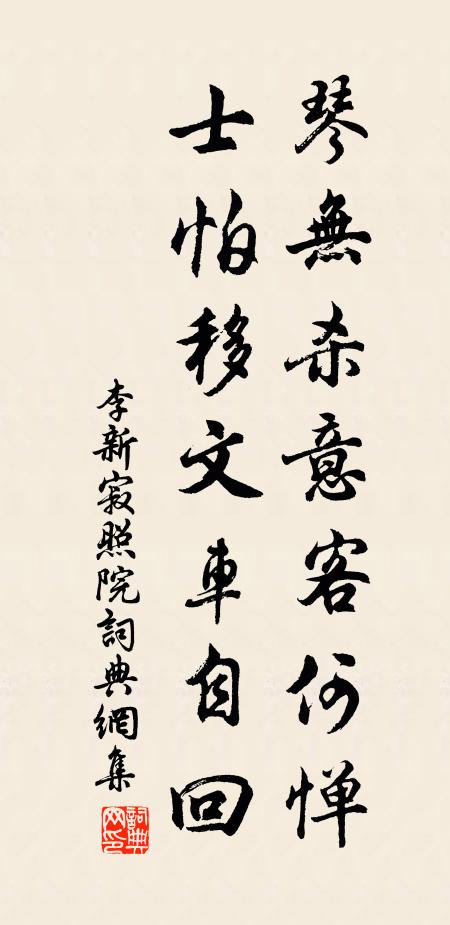 琴無杀意客何惮
士怕移文車自回
李新寂照院詞典網集
詞典网印